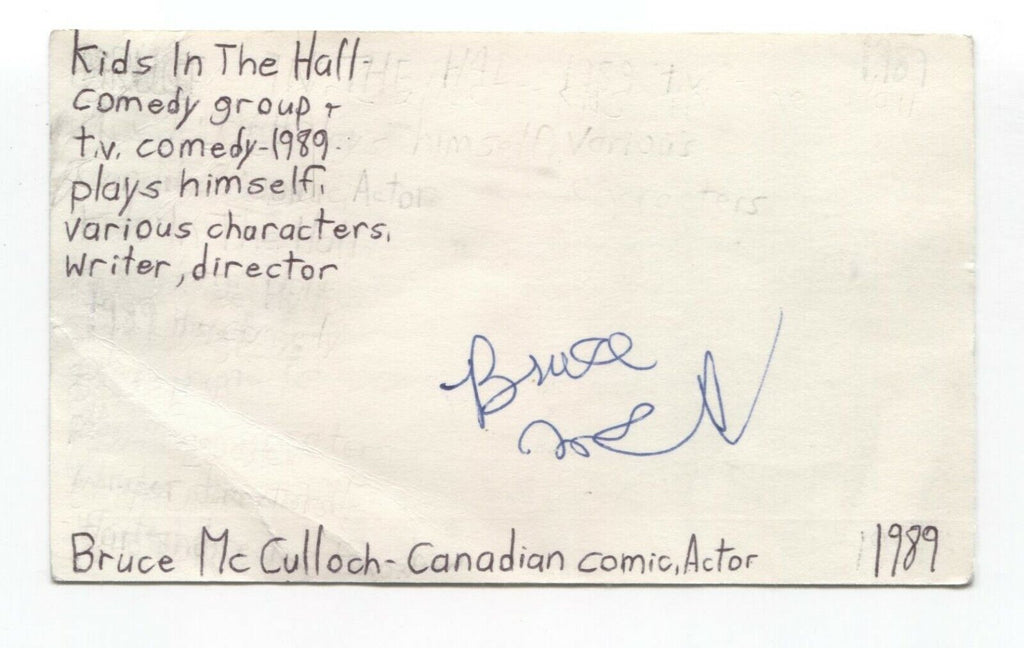 Kids In The Hall-
Comedy group +
t.v. comedy-1989.
plays himself,
various characters,
Writer, director
Bruce
Bruce McCulloch - Canadian comic, Actor
1989